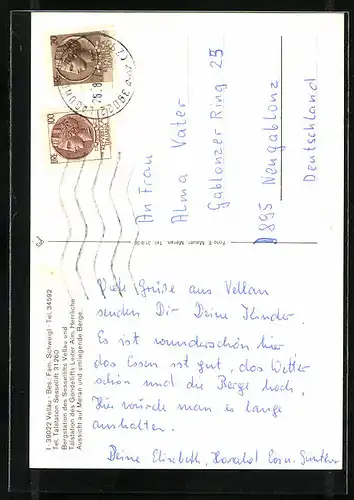 An Frau
Alma Vater
Gablonzer Ring 25
D 895 Neugablonz
Deutschland
Foto E. Mauer, Meran, Tel.
Viele Grüsse aus Vellau
senden Dir Deine Kinder.
Es ist wunderschön hier
das Essen ist gut, das Wetter
schön und die Berge hoch.
Hier würde man es lange
aushalten.
Deine Elisabeth, Harald Günther
I - 39022 Vellau - Bes.: Fam. Schweigl - Tel. 34592
Tel. Talstation Sessellift 31260
Bergstation des Sessellifts Vellau und
Talstation des Gondellifts Leiter Alm, Herrliche
Aussicht auf Meran und umliegende Berge.
LIRE 100
39022